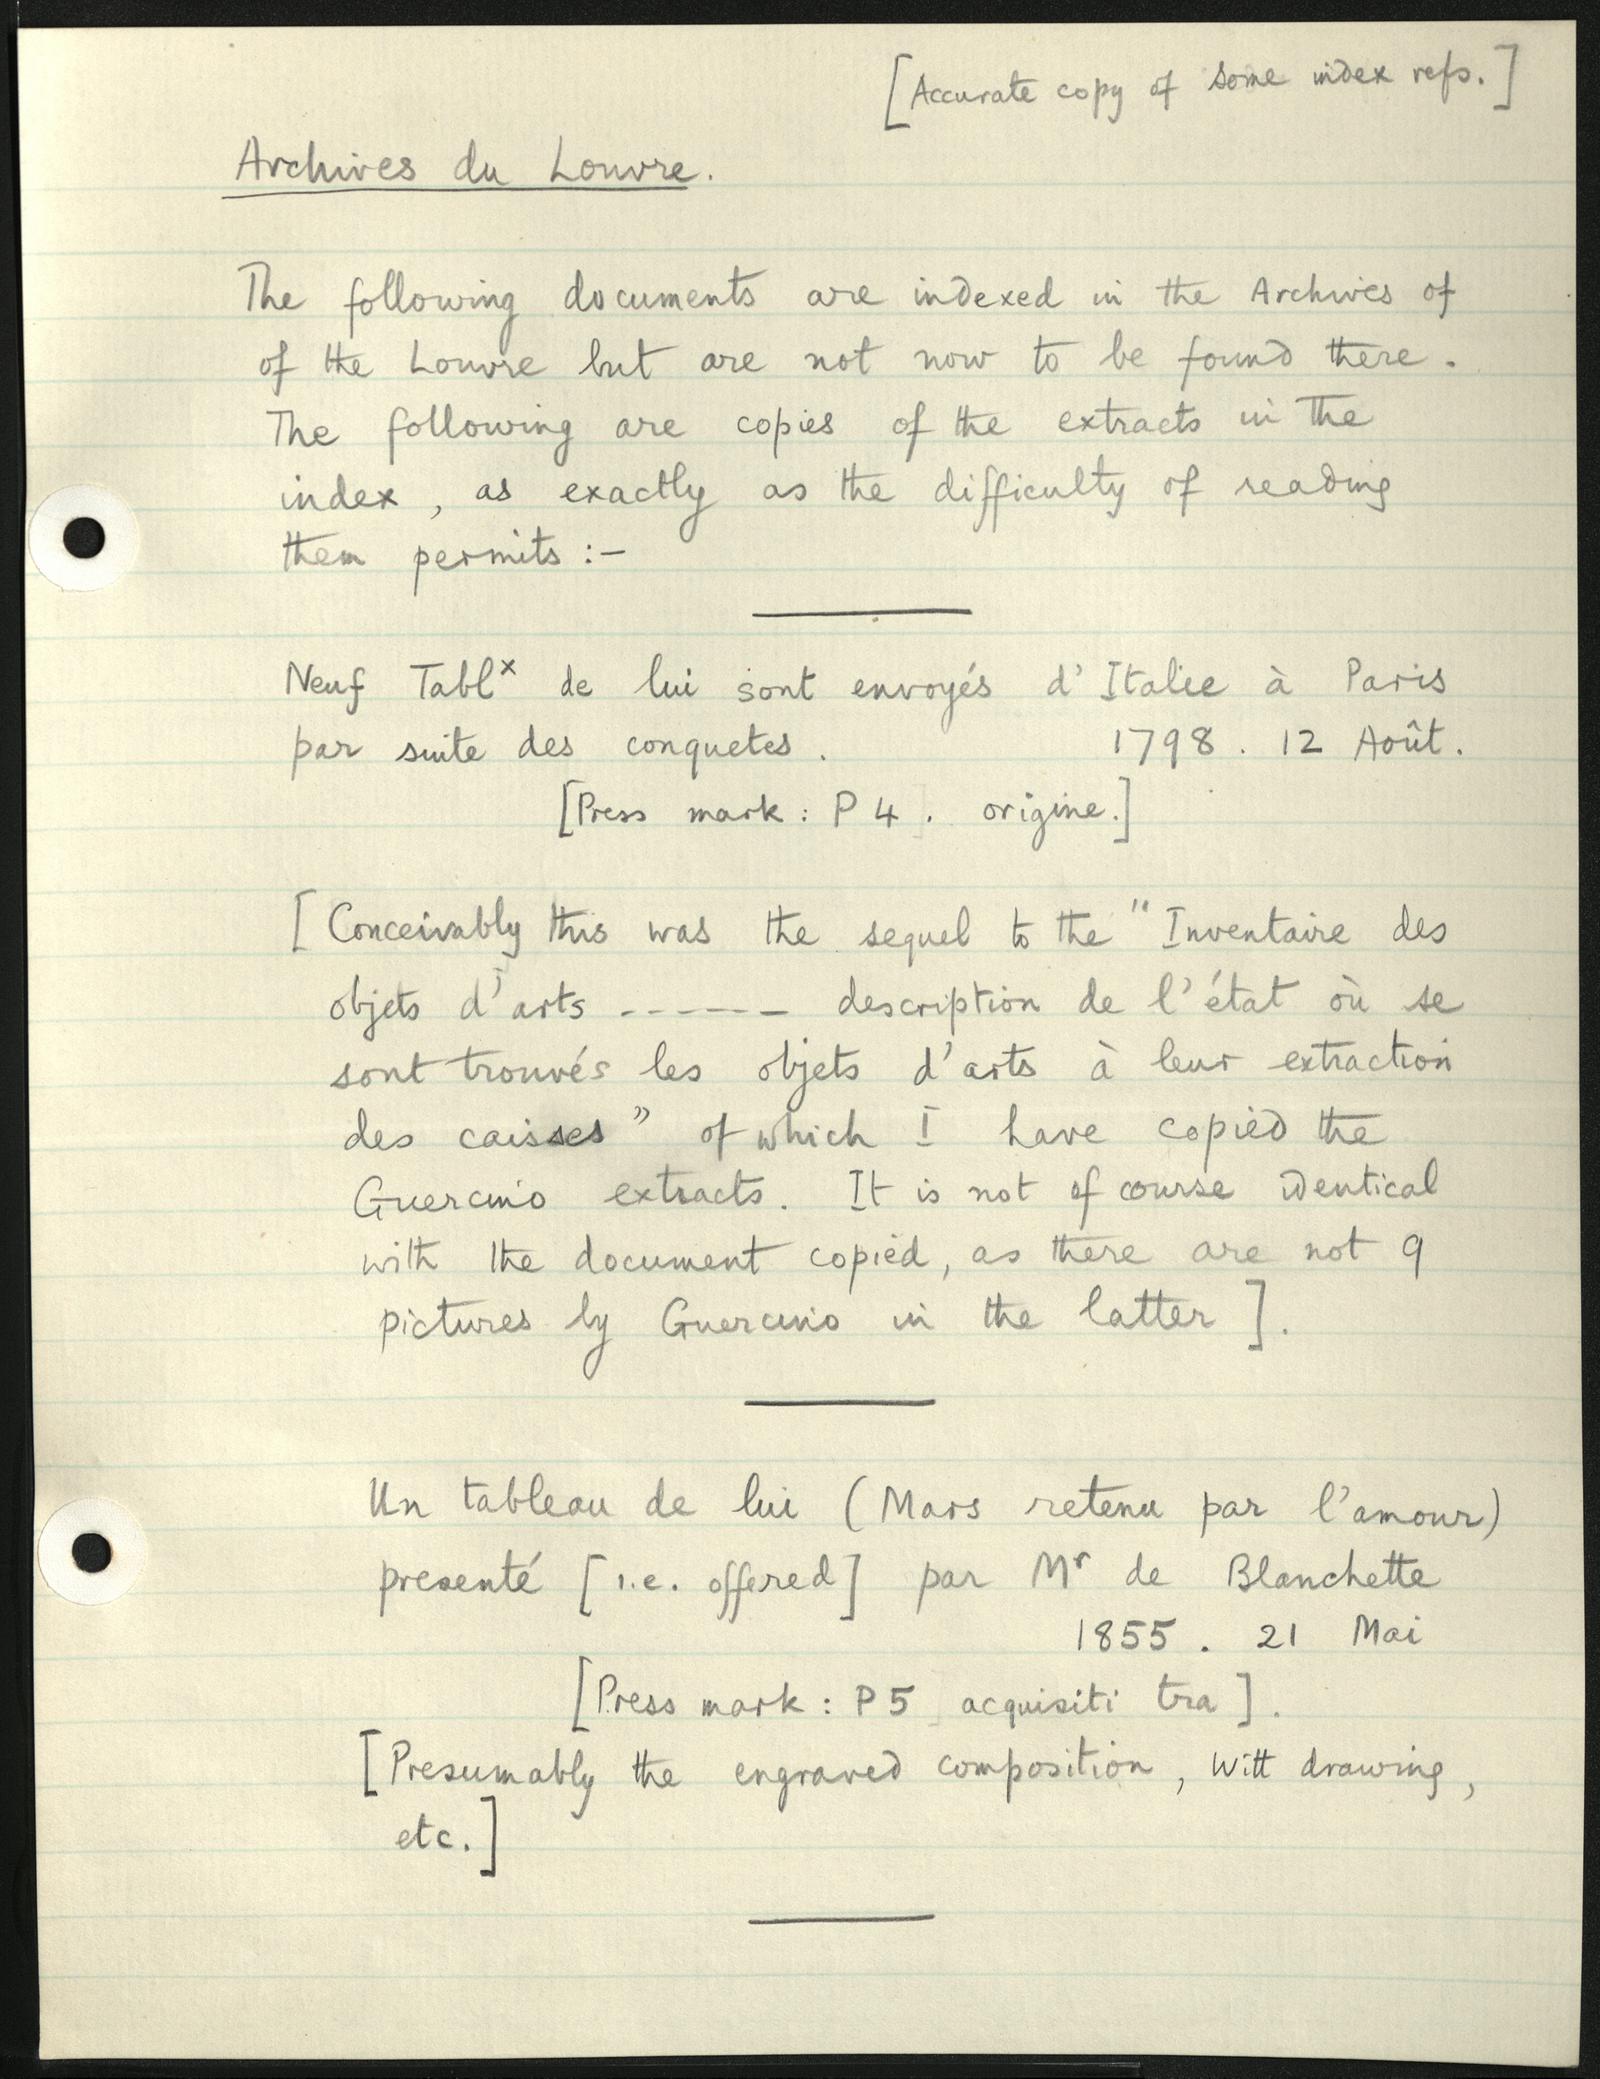 [Accurate copy of some index refs.]
Archives du Louvre.
The following documents are indexed in the Archives of
of the Louvre but are not now to be found there.
The following are copies of the extracts in the
index, as exactly as the difficulty of reading
them permits :-
Neuf Tablˣ de lui sont envoyés d'Italie à Paris
par suite des conquetes. 1798. 12 Août.
[Press mark: P 4. origine.]
[Conceivably this was the sequel to the "Inventaire des
objets d'arts ------ description de l'état où se
sont trouvés les objets d'arts à leur extraction
des caisses" of which I have copied the
Guercino extracts. It is not of course identical
with the document copied, as there are not 9
pictures by Guercino in the latter].
Un tableau de lui (Mars retenu par l'amour)
presenté [i.e. offered] par Mʳ de Blanchette
1855. 21 Mai
[Press mark: P 5 acquisiti tra].
[Presumably the engraved composition, Witt drawing,
etc.]